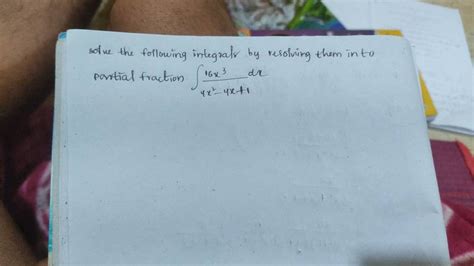 solve the following integrals by resolving them in to
partial fraction ∫ 16x³ / 4x² - 4x + 1 dx